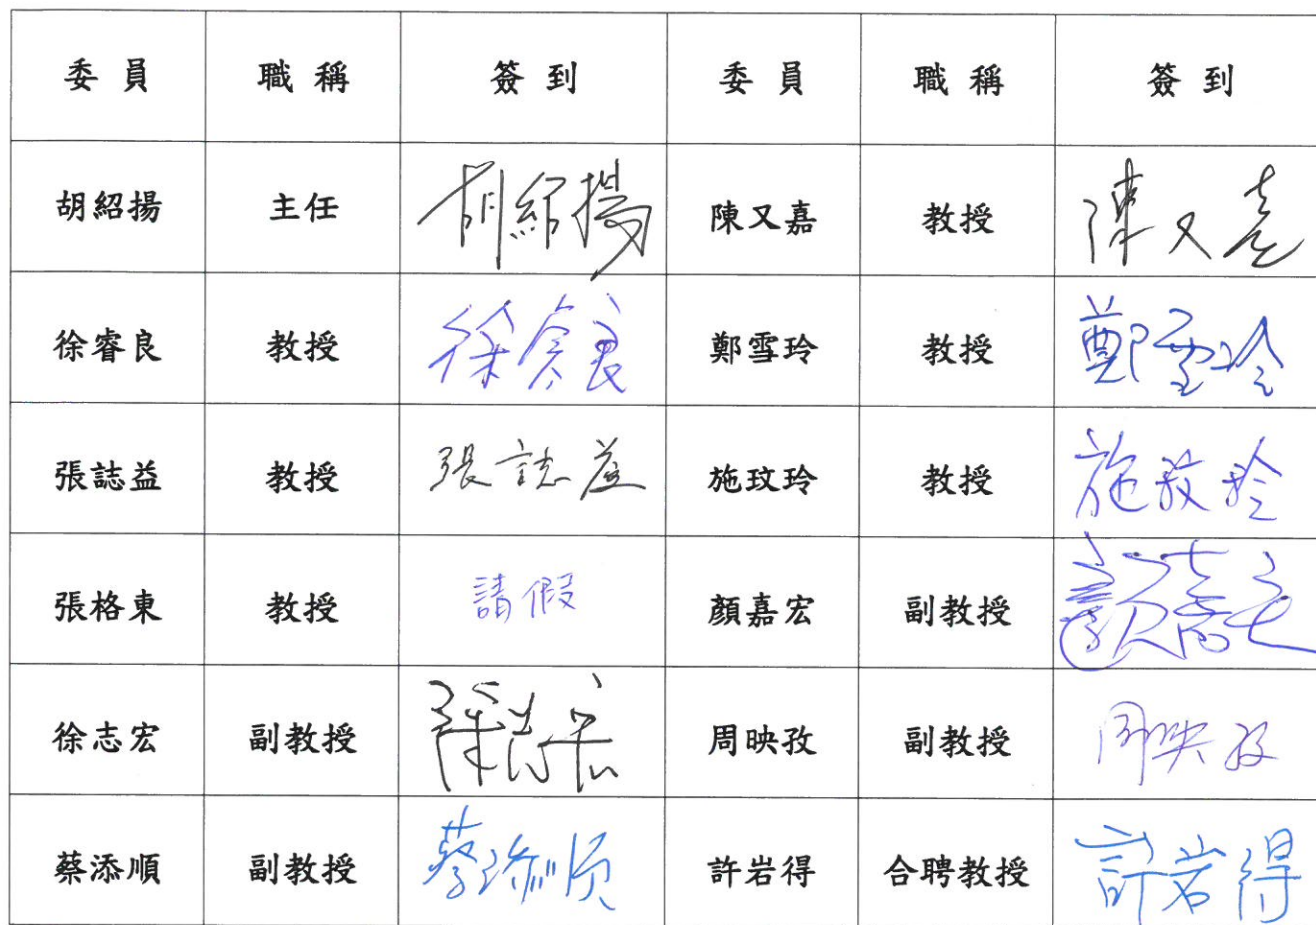 委員 職稱 簽到 委員 職稱 簽到
胡紹揚 主任 胡紹揚 陳又嘉 教授 陳又嘉
徐睿良 教授 徐睿良 鄭雪玲 教授 鄭雪玲
張誌益 教授 張誌益 施玟玲 教授 施玟玲
張格東 教授 請假 顏嘉宏 副教授 顏嘉宏
徐志宏 副教授 徐志宏 周映孜 副教授 周映孜
蔡添順 副教授 蔡添順 許岩得 合聘教授 許岩得